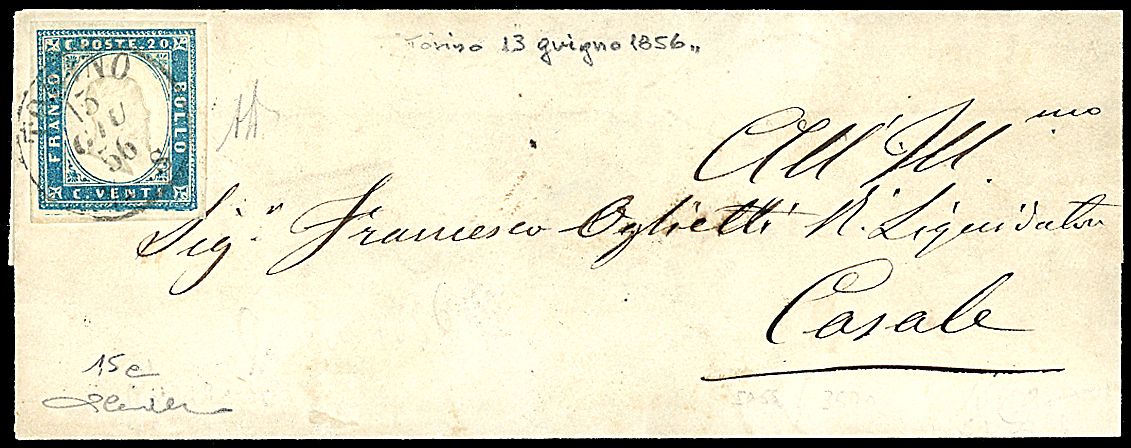 C. POSTE 20
FRANCO
BOLLO
C. VENTI
TORINO
13
GIU
56
8
Torino 13 giugno 1856„
All' Ill mo
Sig.r Francesco Oglietti R. Liquidatore
Casale
15c